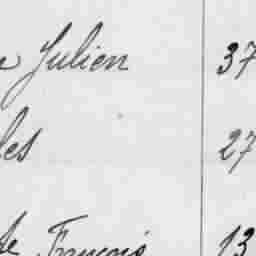 e Julien 37
les 27
de François 13